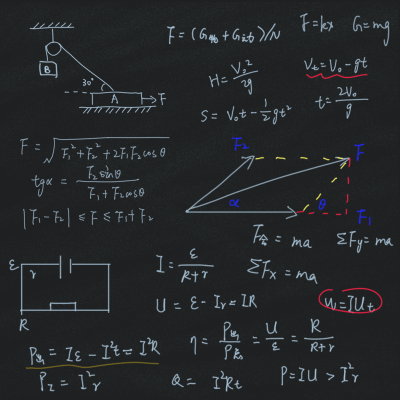 F = (G物 + G动)/N
F=kx G=mg
B
30°
A
F
H = V₀²/2g
Vt = V₀ - gt
S = V₀t - 1/2 gt²
t = 2V₀/g
F = √(F₁² + F₂² + 2F₁F₂cosθ)
tgα = F₂sinθ / F₁ + F₂cosθ
|F₁ - F₂| ≤ F ≤ F₁ + F₂
F₂
F
α
θ
F₁
F合 = ma ΣFy = ma
ε
r
R
I = ε / R+r
ΣFx = ma
U = ε - Ir = IR
W = IUt
η = = U/ε = R / R+r
= Iε - I²r = I²R
= I²r
Q = I²Rt
P = IU > I²r